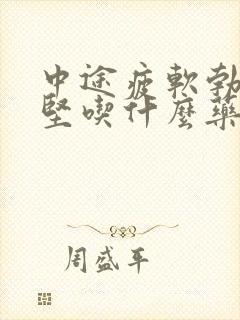 中途疲軟勃
堅喫什麼藥
周盛平